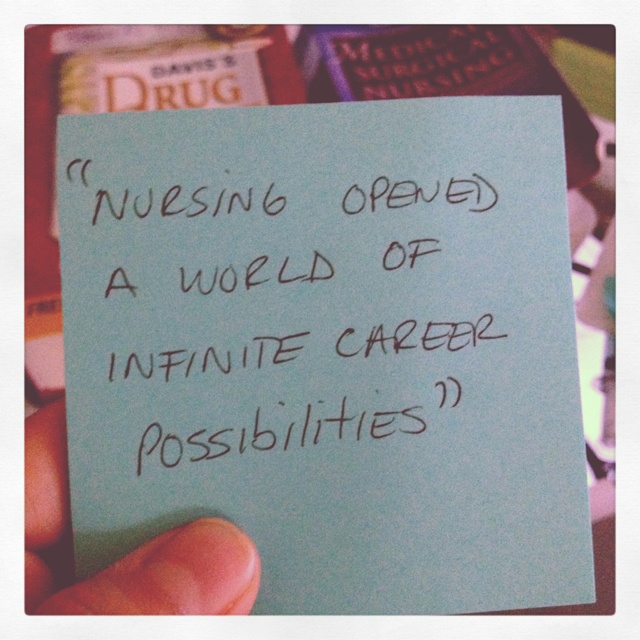 DAVIS'S
DRUG
MEDICAL
SURGICAL
NURSING
"NURSING OPENED
A WORLD OF
INFINITE CAREER
POSSIBILITIES"